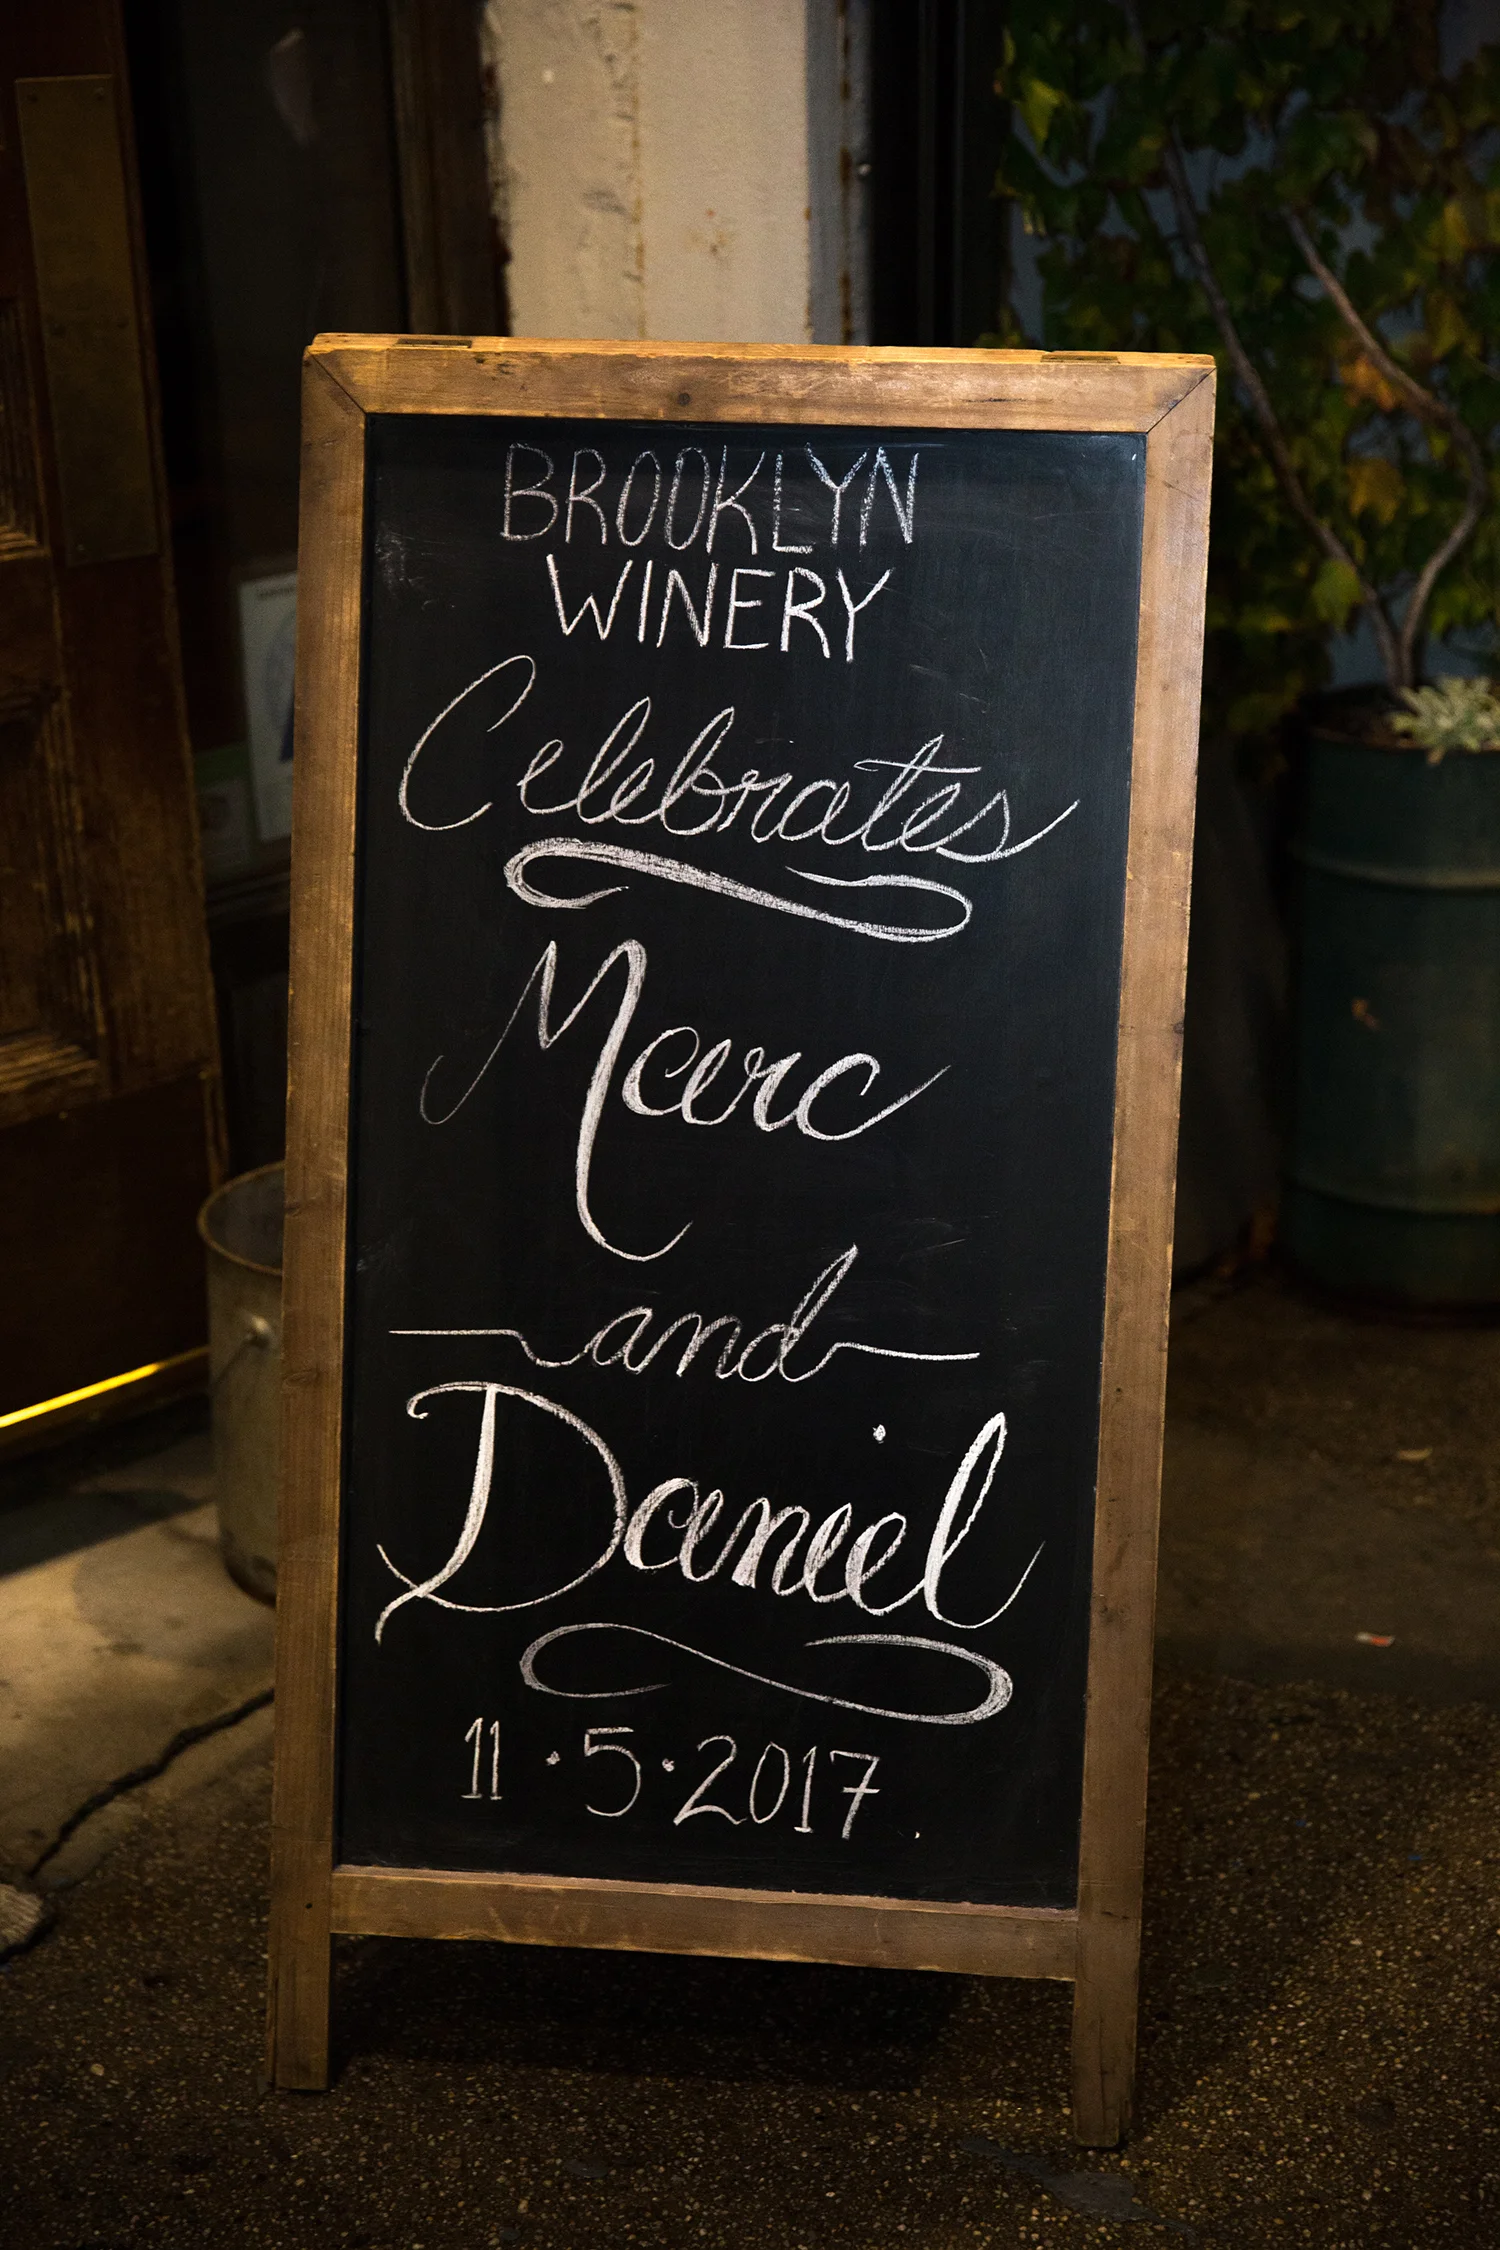 BROOKLYN
WINERY
Celebrates
Marc
and
Daniel
11 · 5 · 2017